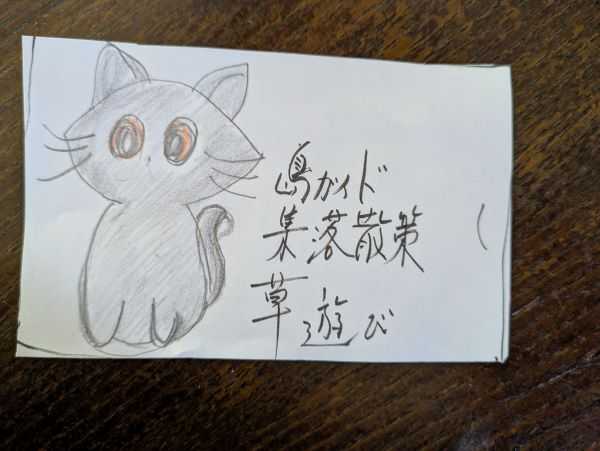 島ガイド
集落散策
草遊び